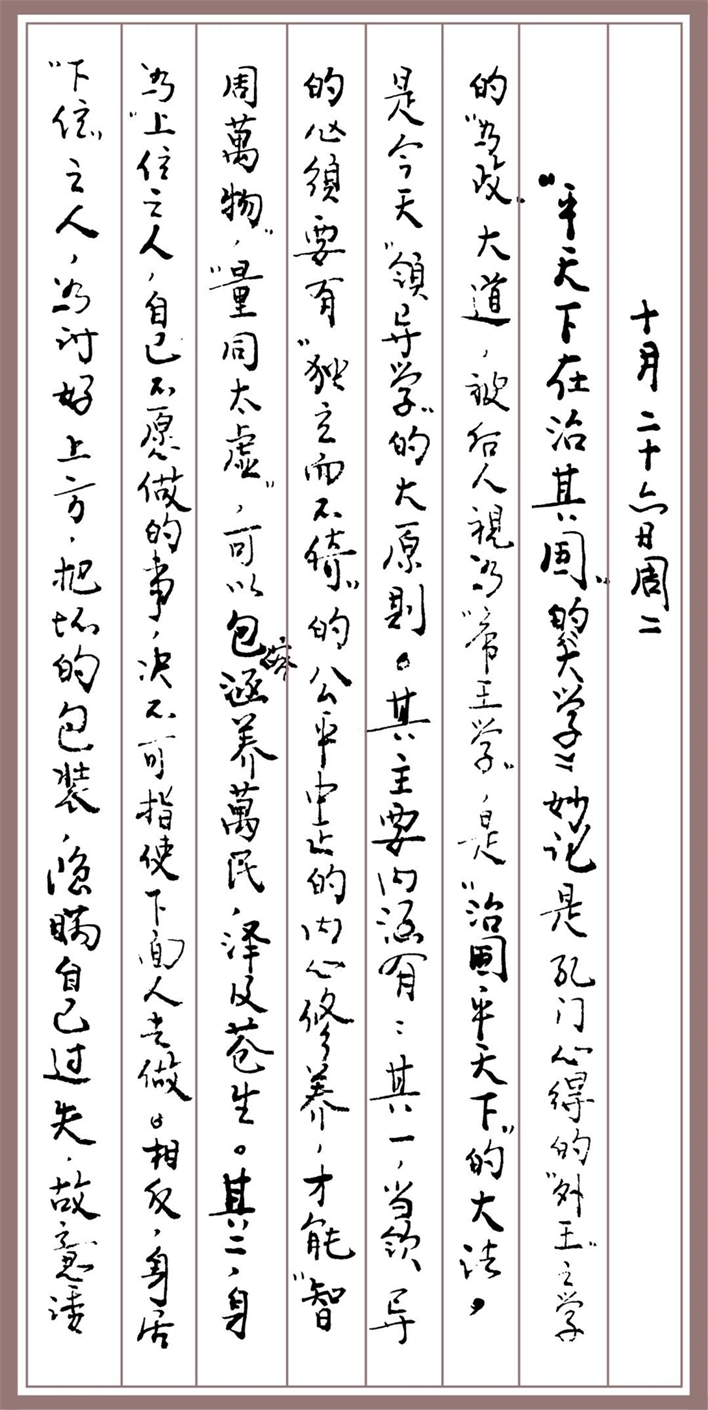 十月二十六日周二
“平天下在治其国”的《大学》妙论是孔门心得的“外王”之学
的“为政”大道，被后人视为“帝王学”，是“治国平天下”的大法，
是今天“领导学”的大原则。其主要内涵有：其一，当领导
的必须要有“独立而不倚”的公平中正的内心修养，才能“智
周萬物”，“量同太虚”，可以包容涵养萬民，泽及苍生。其二，身
为“上位”之人，自己不愿做的事，决不可指使下面人去做。相反，身居
“下位”之人，为讨好上方，把坏的包装，隐瞒自己过失，故意